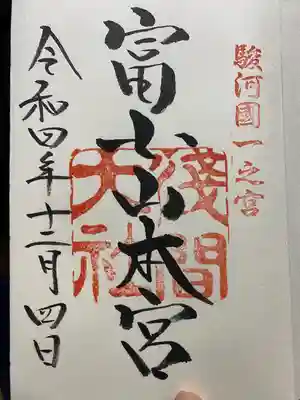 駿河國一之宮
富士山本宮
淺間
大社
令和四年十二月四日